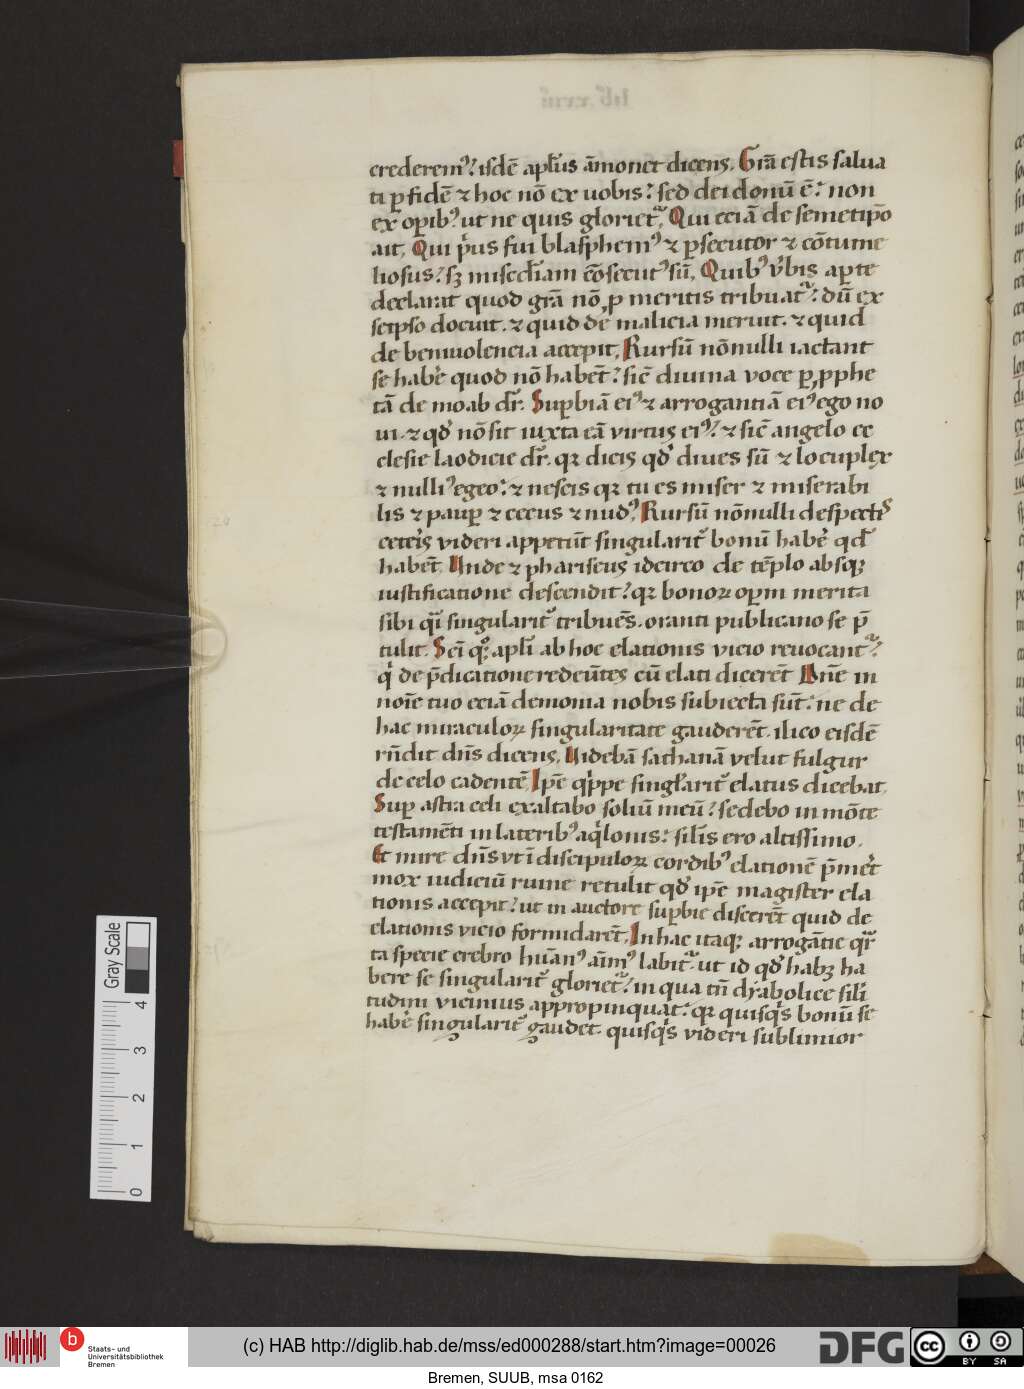 crederemꝰ? isdē aplꝰs āmonet dicens. Grā estis salua
ti ꝑ fidē ⁊ hoc nō ex uobis? sed dei donū ē? non
ex oꝑibꝰ? ut ne quis glorietᷣ. Qui eciā de semetip̄o
ait. Qui pͥus fui blasphemꝰ ⁊ ꝑsecutor ⁊ cōtume
liosus? sꝫ misedīam cōsecutꝰ sū. Quibꝰ v̓bis aꝑte
declarat quod grā nō ꝓ meritis tribuatᷣ? dū ex
seipso docuit. ⁊ quid de malicia meruit. ⁊ quid
de beniuolencia accepit. Rursū nōnulli iactant
se habe̓ quod nō habēt? sic̄ diuina voce ꝑ ꝓphe
tā de moab dr̄. Suꝑbiā eiꝰ ⁊ arrogantiā eiꝰ ego no
ui. ⁊ qd̓ nō sit iuxta eā virtus eiꝰ? ⁊ sic̄ angelo ec
clesie laodicie dr̄. qꝛ dicis qd̓ diues sū ⁊ locuplex
⁊ nulliꝰ egeo? ⁊ nescis qꝛ tu es miser ⁊ miserabi
lis ⁊ pauꝑ ⁊ cecus ⁊ nudꝰ. Rursū nōnulli despectis
cete̓is videri appetūt singularit̓ bonū habe̓ qd̓
habēt. Unde ⁊ phariseus idcirco de tēplo absqꝫ
iustificatione descendit? qꝛ bonoꝝ oꝑm merita
sibi qͣi singularit̓ tribuēs. oranti publicano se p̄
tulit. Sc̄i qͦꝫ apl̄i ab hoc elationis vicio reuocantᷣ?
qͥ de p̄dicatione redeūtes cū elati dicerēt Dn̄e in
noīe tuo eciā demonia nobis subiecta sūt? ne de
hac miraculoꝝ singularitate gauderēt. ilico eisdē
rn̄dit dn̄s dicens. Uidebā sathanā velut fulgur
de celo cadentē. Ip̄e qͥppe singl̓arit̓ elatus dicebat.
Suꝑ astra celi exaltabo soliū meū? sedebo in mōte
testamēti in lateribꝰ aqͥlonis? sil̄is ero altissimo.
Et mire dn̄s vt ī discipuloꝝ cordibꝰ elationē p̄me̓t
mox iudiciū ruine retulit qd̓ ip̄e magister ela
tionis accepit? ut in auctore suꝑbie discerēt quid de
elationis vicio formidarēt. In hac itaqꝫ arrogātie qͣr
ta specie crebro huānꝰ aīmꝰ labitᷣ. ut id qd̓ habꝫ ha
bere se singularit̓ glorietᷣ? in qua tn̄ dyabolice sili
tudini vicinius appropinquat? qꝛ quisqͥs bonū se
habe̓ singularit̓ gaudet. quisqͥs videri sublimior
Gray Scale
4
3
2
1
0
b
Staats- und
Universitätsbibliothek
Bremen
(c) HAB http://diglib.hab.de/mss/ed000288/start.htm?image=00026
DFG
cc
BY
SA
Bremen, SUUB, msa 0162